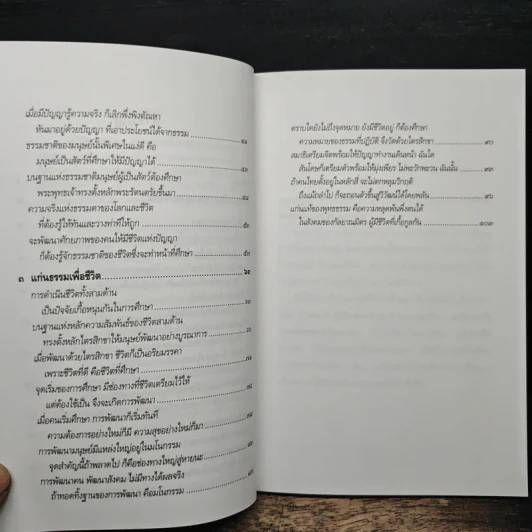 เมื่อมีปัญญารู้ความจริง ก็เลิกพึ่งพิงตัณหา
หันมาอยู่ด้วยปัญญา ที่เอาประโยชน์ได้จากธรรม
ธรรมชาติของมนุษย์นั้นพิเศษในแง่ดี คือ
มนุษย์เป็นสัตว์ที่ศึกษาให้มีปัญญาได้
บนฐานแห่งธรรมชาติมนุษย์ผู้เป็นสัตว์ต้องศึกษา
พระพุทธเจ้าทรงตั้งหลักพระรัตนตรัยขึ้นมา
ความจริงแห่งธรรมดาของโลกและชีวิต
ที่ต้องรู้ให้ทันและวางท่าทีให้ถูก
จะพัฒนาศักยภาพของคนให้มีชีวิตแห่งปัญญา
ก็ต้องรู้จักธรรมชาติของชีวิตซึ่งจะทำหน้าที่ศึกษา
๓ แก่นธรรมเพื่อชีวิต
การดำเนินชีวิตทั้งสามด้าน
เป็นปัจจัยเกื้อหนุนกันในการศึกษา
บนฐานแห่งหลักความสัมพันธ์ของชีวิตสามด้าน
ทรงตั้งหลักไตรสิกขาให้มนุษย์พัฒนาอย่างบูรณาการ
เมื่อพัฒนาด้วยไตรสิกขา ชีวิตก็เป็นอริยมรรคา
เพราะชีวิตที่ดี คือชีวิตที่ศึกษา
จุดเริ่มของการศึกษา มีช่องทางที่ชีวิตเตรียมไว้ให้
แต่ต้องใช้เป็น จึงจะเกิดการพัฒนา
เมื่อคนเริ่มศึกษา การพัฒนาก็เริ่มทันที
ความต้องการอย่างใหม่ก็มี ความสุขอย่างใหม่ก็มา
การพัฒนามนุษย์มีแหล่งใหญ่อยู่ในมโนกรรม
จุดสำคัญนี้ถ้าพลาดไป ก็คือช่องทางใหญ่สู่หายนะ
การพัฒนาคน พัฒนาสังคม ไม่มีทางได้ผลจริง
ถ้าทอดทิ้งฐานของการพัฒนา คือมโนกรรม
ตราบใดยังไม่ถึงจุดหมาย ยังมีชีวิตอยู่ ก็ต้องศึกษา
ความหมายของธรรมที่ปฏิบัติ จึงวัดด้วยไตรสิกขา
สมาธิเตรียมจิตพร้อมให้ปัญญาทำงานเดินหน้า ฉันใด
สันโดษก็เตรียมตัวพร้อมให้มุ่งเพียร ไม่พะวักพะวน ฉันนั้น
ถ้าคนไทยตั้งอยู่ในหลักสี่ จะไม่ตกหลุมวิกฤติ
ถึงแม้ถลำไป ก็จะถอนตัวขึ้นสู่วิวัฒน์ได้โดยพลัน
แก่นแท้ของพุทธธรรม คือความหลุดพ้นพึ่งตนได้
ในสังคมของกัลยาณมิตร ผู้มีชีวิตที่เกื้อกูลกัน ๑๐๓